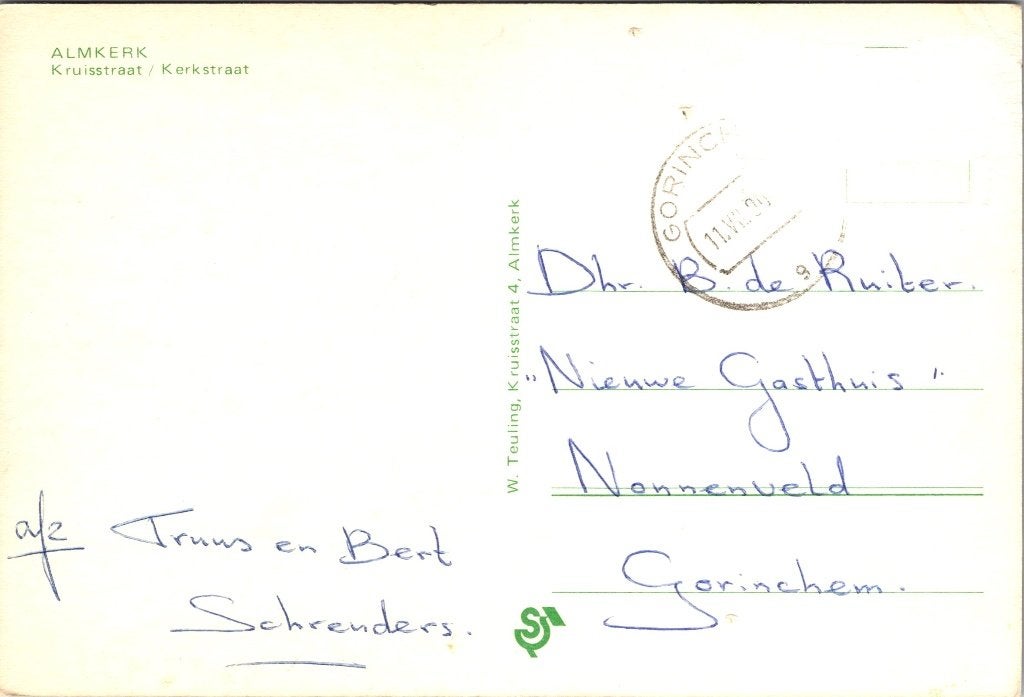 ALMKERK
Kruisstraat / Kerkstraat
GORINC
11.VII
9
W. Teuling, Kruisstraat 4, Almkerk
Dhr. B. de Ruiter.
"Nieuwe Gasthuis"
Nonnenveld
Gorinchem.
afz Truus en Bert
Schreuders.